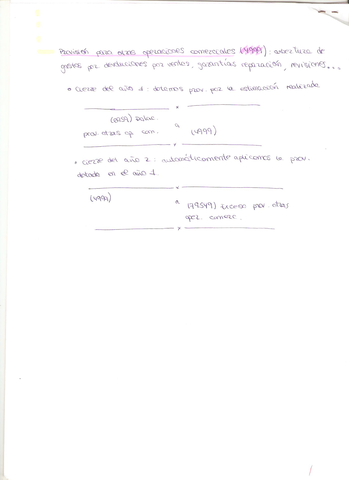 Provisión para otras operaciones comerciales (4999): cobertura de
gastos por devoluciones por ventas, garantías reparación, revisiones...
• Cierre del año 1: dotamos prov. por la estimación realizada
prov. otras op. com. a (4999)
• Cierre del año 2: automáticamente aplicamos la prov.
dotada en el año 1.
(4999) a (79549) exceso prov. otras
oper. comerc.